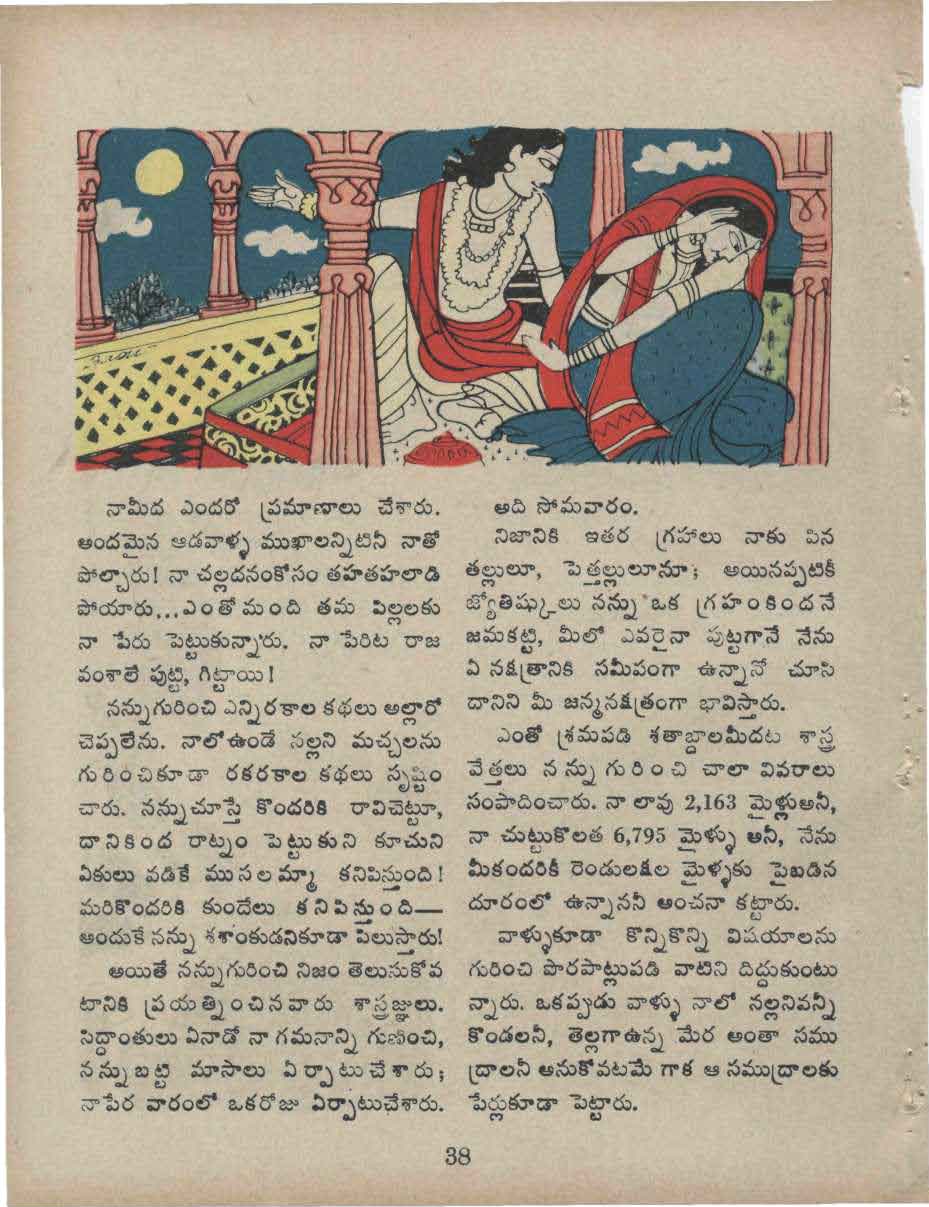 నామీద ఎందరో ప్రమాణాలు చేశారు.
అందమైన ఆడవాళ్ళ ముఖాలన్నిటినీ నాతో
పోల్చారు! నా చల్లదనంకోసం తహతహలాడి
పోయారు...ఎంతోమంది తమ పిల్లలకు
నా పేరు పెట్టుకున్నారు. నా పేరిట రాజ
వంశాలే పుట్టి, గిట్టాయి!
నన్నుగురించి ఎన్నిరకాల కథలు అల్లారో
చెప్పలేను. నాలోఉండే నల్లని మచ్చలను
గురించికూడా రకరకాల కథలు సృష్టిం
చారు. నన్నుచూస్తే కొందరికి రావిచెట్టూ,
దానికింద రాట్నం పెట్టుకుని కూచుని
ఏకులు వడికే ముసలమ్మా కనిపిస్తుంది!
మరికొందరికి కుందేలు కనిపిస్తుంది—
అందుకే నన్ను శశాంకుడనికూడా పిలుస్తారు!
అయితే నన్నుగురించి నిజం తెలుసుకోవ
టానికి ప్రయత్నించినవారు శాస్త్రజ్ఞులు.
సిద్ధాంతులు ఏనాడో నా గమనాన్ని గుణించి,
నన్నుబట్టి మాసాలు ఏర్పాటుచేశారు;
నాపేర వారంలో ఒకరోజు ఏర్పాటుచేశారు.
అది సోమవారం.
నిజానికి ఇతర గ్రహాలు నాకు పిన
తల్లులూ, పెత్తల్లులూనూ; అయినప్పటికీ
జ్యోతిష్కులు నన్ను ఒక గ్రహంకిందనే
జమకట్టి, మీలో ఎవరైనా పుట్టగానే నేను
ఏ నక్షత్రానికి సమీపంగా ఉన్నానో చూసి
దానిని మీ జన్మనక్షత్రంగా భావిస్తారు.
ఎంతో శ్రమపడి శతాబ్దాలమీదట శాస్త్ర
వేత్తలు నన్ను గురించి చాలా వివరాలు
సంపాదించారు. నా లావు 2,163 మైళ్లుఅనీ,
నా చుట్టుకొలత 6,795 మైళ్ళు అనీ, నేను
మీకందరికీ రెండులక్షల మైళ్ళకు పైబడిన
దూరంలో ఉన్నాననీ అంచనా కట్టారు.
వాళ్ళుకూడా కొన్నికొన్ని విషయాలను
గురించి పొరపాట్లుపడి వాటిని దిద్దుకుంటు
న్నారు. ఒకప్పుడు వాళ్ళు నాలో నల్లనివన్నీ
కొండలనీ, తెల్లగాఉన్న మేర అంతా సము
ద్రాలనీ అనుకోవటమే గాక ఆ సముద్రాలకు
పేర్లుకూడా పెట్టారు.
38